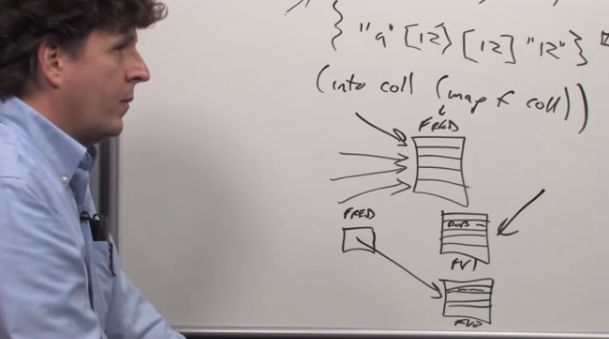 } "a" [12} [12] "12" }
(into coll (map f coll))
FRED
FRED
FV1
FV2